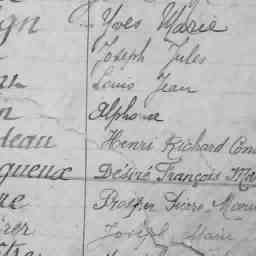 gn Yves Marie
Joseph Jules
Louis Jean
in Alphonse
deau Henri Richard Con
gueux Désiré François Ma
re Prosper Marie
Joseph Marie